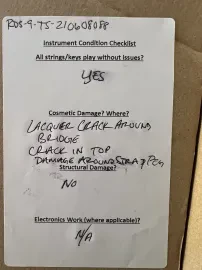 ROS-9-TS-210608088
Instrument Condition Checklist
All strings/keys play without issues?
YES
Cosmetic Damage? Where?
LACQUER CRACK AROUND
BRIDGE
CRACK IN TOP
DAMAGE AROUND STRAP PEG
Structural Damage?
NO
Electronics Work (where applicable)?
N/A